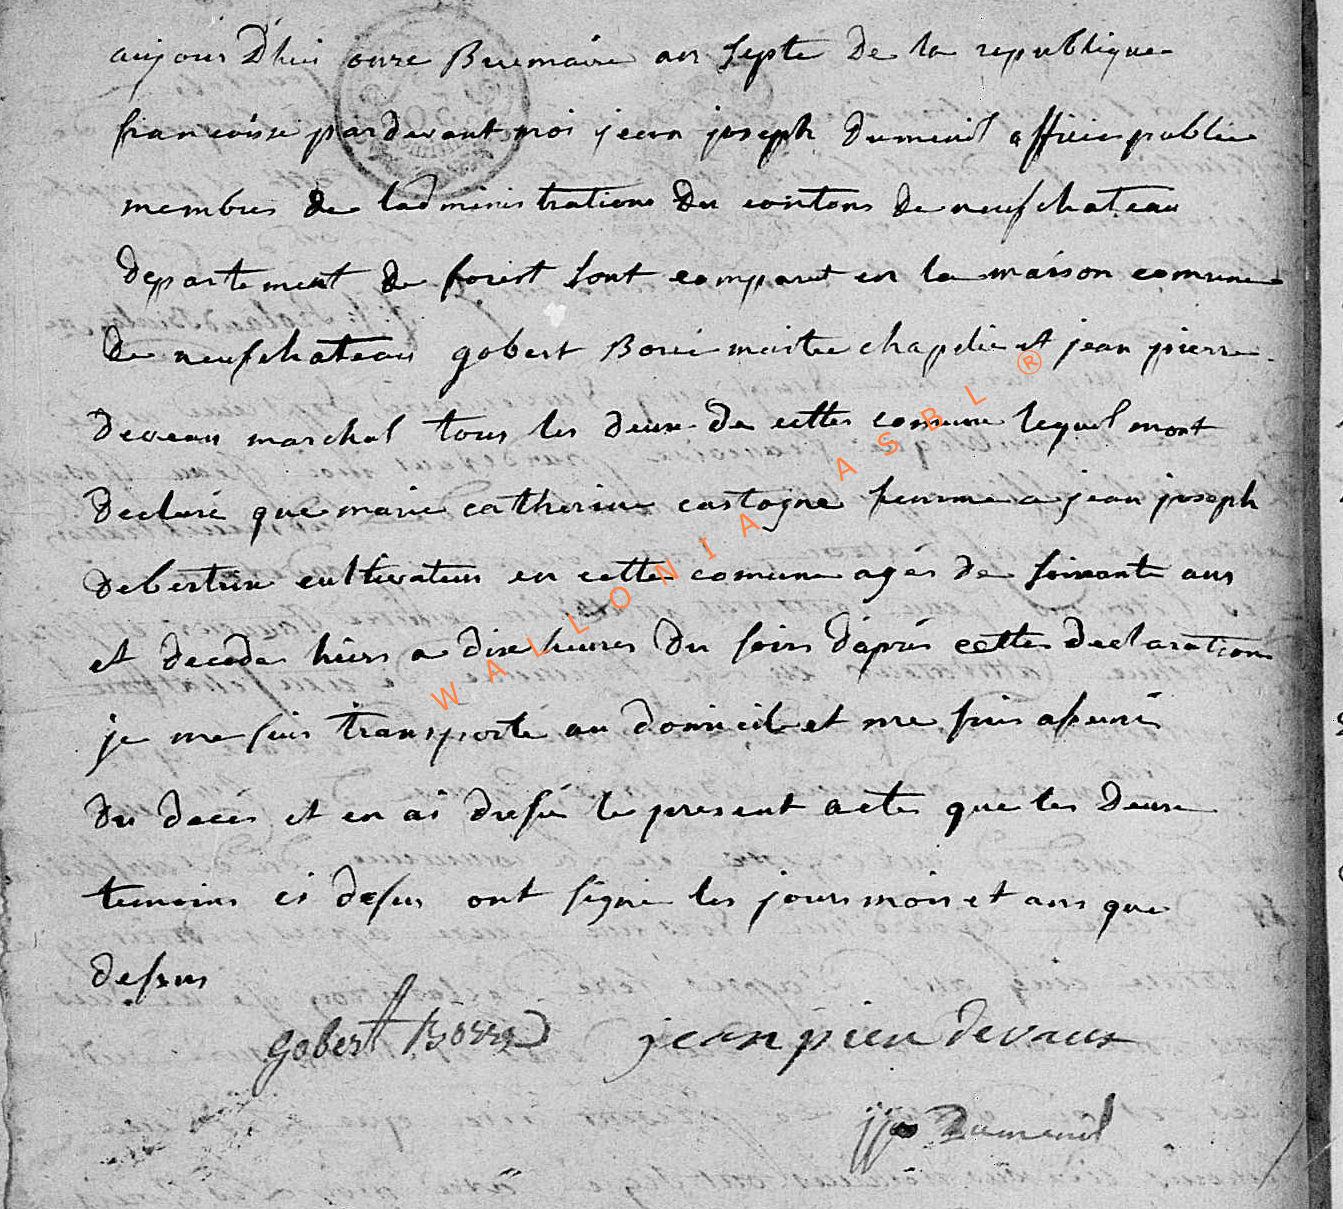 aujour D'hui onze Brumaire an septe De la republique
francoise pardevant moi jean joseph Dumenil officier public
membres De l'administrations Du contons De neufchateau
Departement De forest sont comparut en la maison comune
De neufchateau gobert Borié maitre chaplié et jean pierre
Deveau marchal tous les deux De cette comune lequel mont
Declaré que marie catherine castogne femme a jean joseph
Debertrix cultivateur en cette comune agés De soixante ans
et decedes hiers a dix heures Du soirs d'aprés cette declarations
je me suis transporté au domicil et me suis asseuré
Du decés et en ai dressé le present actes que les Deux
temoins ci dessus ont signé les jours mois et ans que
dessus
gobert Borry jean pieu devaux
jj Dumenil
WALLONIA ASBL ®